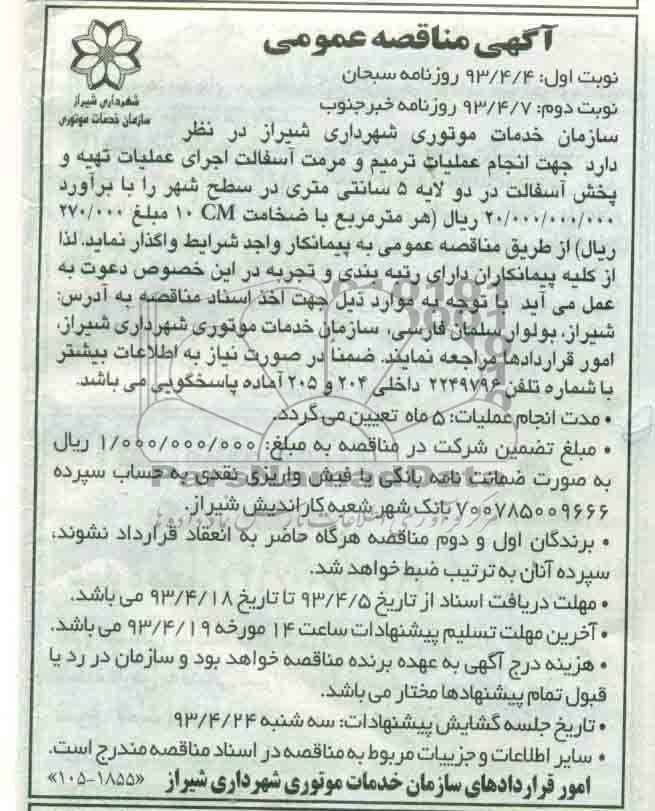 آگهی مناقصه عمومی
شهرداری شیراز
سازمان خدمات موتوری
نوبت اول: ۹۳/۴/۴ روزنامه سبحان
نوبت دوم: ۹۳/۴/۷ روزنامه خبرجنوب
سازمان خدمات موتوری شهرداری شیراز در نظر
دارد جهت انجام عملیات ترمیم و مرمت آسفالت اجرای عملیات تهیه و
پخش آسفالت در دو لایه ۵ سانتی متری در سطح شهر را با برآورد
۲۰/۰۰۰/۰۰۰/۰۰۰ ریال (هر مترمربع با ضخامت ۱۰ CM مبلغ ۲۷۰/۰۰۰
ریال) از طریق مناقصه عمومی به پیمانکار واجد شرایط واگذار نماید. لذا
از کلیه پیمانکاران دارای رتبه بندی و تجربه در این خصوص دعوت به
عمل می آید با توجه به موارد ذیل جهت اخذ اسناد مناقصه به آدرس:
شیراز، بولوار سلمان فارسی، سازمان خدمات موتوری شهرداری شیراز،
امور قراردادها مراجعه نمایند. ضمناً در صورت نیاز به اطلاعات بیشتر
با شماره تلفن ۲۲۴۹۷۹۶ داخلی ۲۰۴ و ۲۰۵ آماده پاسخگویی می باشد.
• مدت انجام عملیات: ۵ ماه تعیین می گردد.
• مبلغ تضمین شرکت در مناقصه به مبلغ: ۱/۰۰۰/۰۰۰/۰۰۰ ریال
به صورت ضمانت نامه بانکی یا فیش واریزی نقدی به حساب سپرده
۷۰۰۷۸۵۰۰۹۶۶۶ بانک شهر شعبه کاراندیش شیراز.
• برندگان اول و دوم مناقصه هرگاه حاضر به انعقاد قرارداد نشوند،
سپرده آنان به ترتیب ضبط خواهد شد.
• مهلت دریافت اسناد از تاریخ ۹۳/۴/۵ تا تاریخ ۹۳/۴/۱۸ می باشد.
• آخرین مهلت تسلیم پیشنهادات ساعت ۱۴ مورخه ۹۳/۴/۱۹ می باشد.
• هزینه درج آگهی به عهده برنده مناقصه خواهد بود و سازمان در رد یا
قبول تمام پیشنهادها مختار می باشد.
• تاریخ جلسه گشایش پیشنهادات: سه شنبه ۹۳/۴/۲۴
• سایر اطلاعات و جزییات مربوط به مناقصه در اسناد مناقصه مندرج است.
امور قراردادهای سازمان خدمات موتوری شهرداری شیراز «۱۰۵-۱۸۵۵»
ParsNamadData